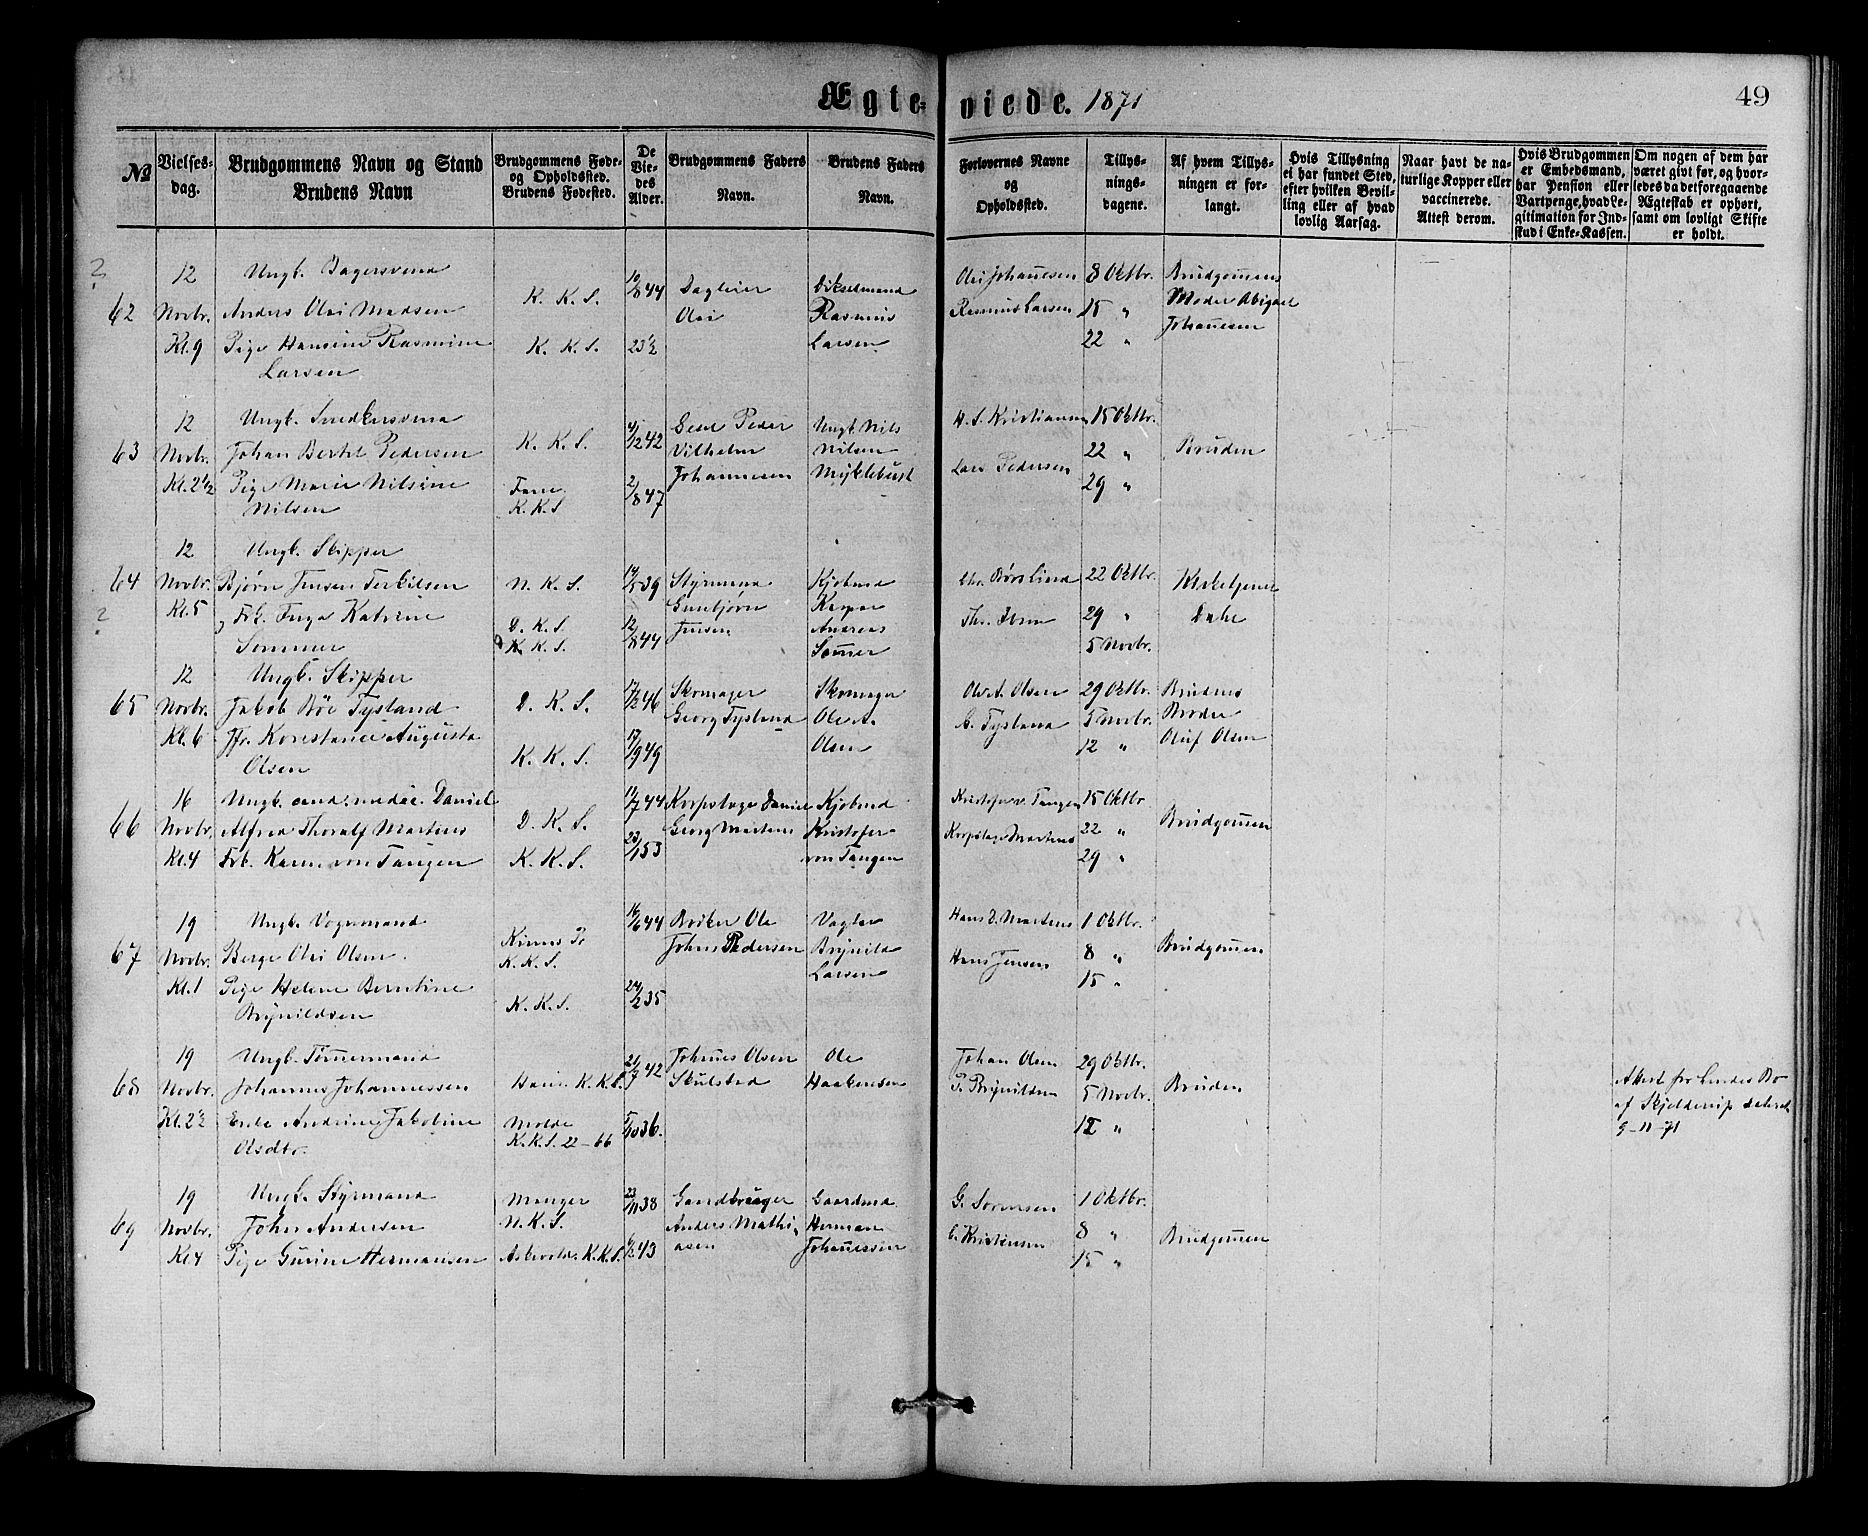 Ægte- viede. 1871
49
No
Vielses-
dag.
Brudgommens Navn og Stand
Brudens Navn
Brudgommens Føde-
og Opholdssted.
Brudens Fødested.
De
Vie-
des
Alder.
Brudgommens Faders
Navn.
Brudens Faders
Navn.
Forlovernes Navne
og
Opholdssted.
Tillys-
nings-
dagene.
Af hvem Tillys-
ningen er for-
langt.
Hvis Tillysning
ei har fundet Sted,
efter hvilken Bevil-
ling eller af hvad
lovlig Aarsag.
Naar havt de na-
turlige Kopper eller
vaccinerede.
Attest derom.
Hvis Brudgommen
er Embedsmand,
har Pension eller
Vartpenge, hvad Le-
gitimation for Ind-
skud i Enke-Kassen.
Om nogen af dem har
været gift før, og hvor-
ledes da det foregaaende
Ægteskab er ophørt,
samt om lovligt Skifte
er holdt.
?
62
12
Novbr.
Kl. 9
Ungk. Bagersvend
Anders Olai Madsen
Pige Hansine Rasmine
Larsen
K. K. S.
K. K. S.
10/8 44
23 1/2
Dagleier
Olai
Rasmus
Larsen
Olai Johanesen
Rasmus Larsen
8 Oktbr.
15 "
22 "
Brudgomens
Moder Abigael
Johanesen
63
12
Novbr.
Kl. 2 1/2
Ungk. Snedkersvend
Johan Bertel Pedersen
Pige Marie Nilsine
Nilsen
K. K. S.
K. K. S
/12 42
2/8 47
Peder
Vilhelm
Johannesen
Ungk. Nils
Nilsen
Myklebust
H. S. Kristiansen
Lars Pedersen
15 Oktbr.
22 "
29 "
Bruden
64
?
12
Novbr.
Kl. 5
Ungk. Skipper
Bjørn Jensen Terkilsen
Frk. Inga Katrine
Sommer
N. K. S.
D. K. S
K. K. S.
14/5 39
12/8 44
Styrmand
Gunbjørn
Jensen
Kjøbmd
Kaspar
Andreas
Somer
Chr. Børs Lind
Thr. Ibsen
22 Oktbr.
29 "
5 Novbr.
Kirketjener
Dahl
65
12
Novbr.
Kl. 6
Ungk. Skipper
Jakob Bøe Tysland
Jfr. Konstance Augusta
Olsen
D. K. S.
K. K. S.
17/2 46
17/9 49
Skomager
Georg Tysland
Skomager
Ole A.
Olsen
Ole A. Olsen
G. Tysland
29 Oktbr.
5 Novbr.
12 "
Brudens
Broder
Oluf Olsen
66
16
Novbr.
Kl. 4
Ungk. cand. medic. Daniel
Alfred Thoralf Martens
Frk. Karen von Tangen
D. K. S.
K. K. S.
17/7 44
23/1 53
Korpslæge Daniel
Georg Martens
Kjøbmd
Kristofer
von Tangen
Kristofer v. Tangen
Korpslæge Martens
15 Oktbr.
22 "
29 "
Brudgomen
67
19
Novbr.
Kl. 1
Ungk. Vognmand
Berge Olai Olsen.
Pige Helene Berntine
Brynildsen
Kinns Pr
K. K. S.
K. K. S.
16/6 44
24/2 35
Bøkker Ole
Johns Pedersen
Vægter
Brynild
Larsen
Hans D. Martens
Hans Jensen
1 Oktbr.
8 "
15 "
Brudgomen
68
19
Novbr.
Kl. 2 1/2
Ungk. Tømermand
Johannes Johannessen
Enke Andrine Jakobine
Olsdtr.
Haus. K. K. S.
Molde
K. K. S. 22 - 66
21/7 42
5/10 36.
Johnes Olsen
Skulstad
Ole
Haakonsen
Johan Olsen
P. Brynildsen
29 Oktbr.
5 Novbr.
12 "
Bruden
Attest fra Enkens Bo
af Skjelderup dateret
9-11-71
69
19
Novbr.
Kl. 4
Ungk. Styrmand
John Andersen
Pige Gurine Hermansen
Manger
N. K. S.
Askvold. K. K. S.
23/11 38
6/2 43
Gaardbruger
Anders Mathi-
asen
Gaardmd
Herman
Johanessen
G. Sørensen
C. Kristensen
1 Oktbr.
8 "
15 "
Brudgomen